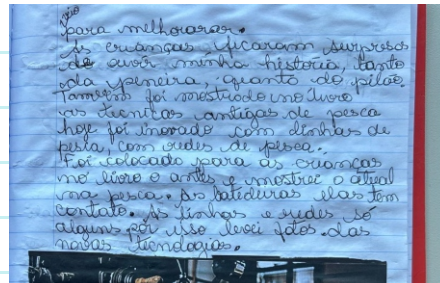 veio
para melhorarar.
As crianças ficaram surpresas
de ouvir minha história, tanto
da peneira, quanto do pilão.
Também foi mostrado no livro
as técnitas antigas de pesca
hoje foi inovado com linhas de
pesca, com redes de pesca.
Foi colocado para as crianças
no livro o antes e mostrei o atual
na pesca. As batideiras elas tem
contato. As linhas e redes só
alguns por isso levei fotos das
novas tecnologias.